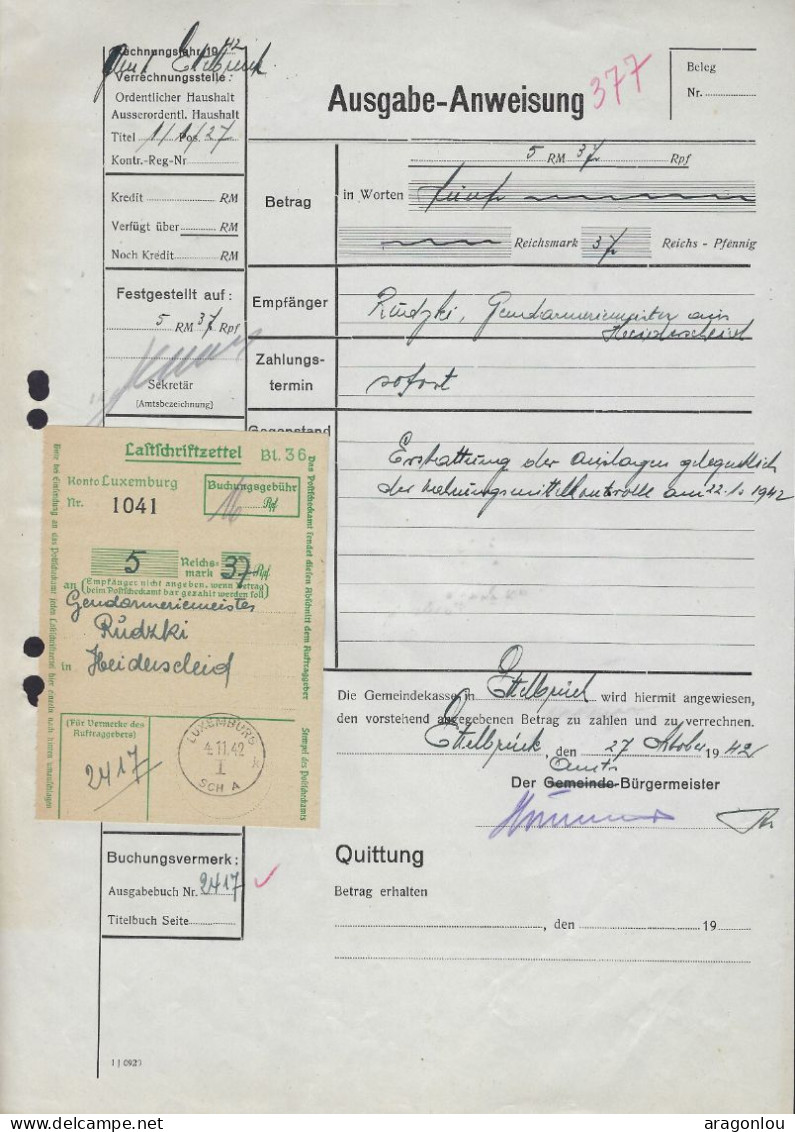 Rechnungsjahr 19 42
Amt Ettelbrück
Verrechnungsstelle:
Ordentlicher Haushalt
Ausserordentl. Haushalt
Titel 1/1/27 Pos.
Kontr.-Reg-Nr
Kredit RM
Verfügt über RM
Noch Kredit RM
Festgestellt auf:
5 RM 37 Rpf
Sekretär
(Amtsbezeichnung)
Ausgabe-Anweisung 377
Beleg
Nr.
Betrag
5 RM 37 Rpf
in Worten fünf
Reichsmark 37 Reichs-Pfennig
Empfänger
Rudzki, Gendarmeriemeister aus
Heiderscheid
Zahlungs-
termin
sofort
Gegenstand
Erstattung der Auslagen gelegentlich
der Nahrungsmittelkontrolle am 22. 1942
Lastschriftzettel Bl. 36
Konto Luxemburg
Nr. 1041
Buchungsgebühr
Rpf.
5 Reichs-
mark 37 Rpf
an (Empfänger nicht angeben, wenn Betrag
beim Postscheckamt bar gezahlt werden soll)
Gendarmeriemeister
Rudzki
in Heiderscheid
(Für Vermerke des
Auftraggebers)
2417
LUXEMBURG
4.11.42
I
SCH A
Das Postscheckamt sendet diesen Abschnitt dem Auftraggeber
Stempel des Postscheckamts
Die Gemeindekasse in Ettelbrück wird hiermit angewiesen,
den vorstehend angegebenen Betrag zu zahlen und zu verrechnen.
Ettelbrück, den 27 Oktober 1942
Amts
Der Gemeinde-Bürgermeister
Buchungsvermerk:
Ausgabebuch Nr. 2417
Titelbuch Seite
Quittung
Betrag erhalten
, den 19
aragonlou
delcampe.net